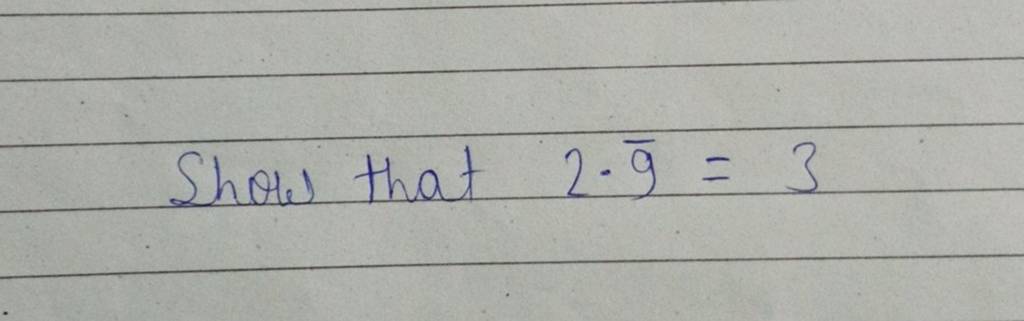 Show that 2.9̅ = 3